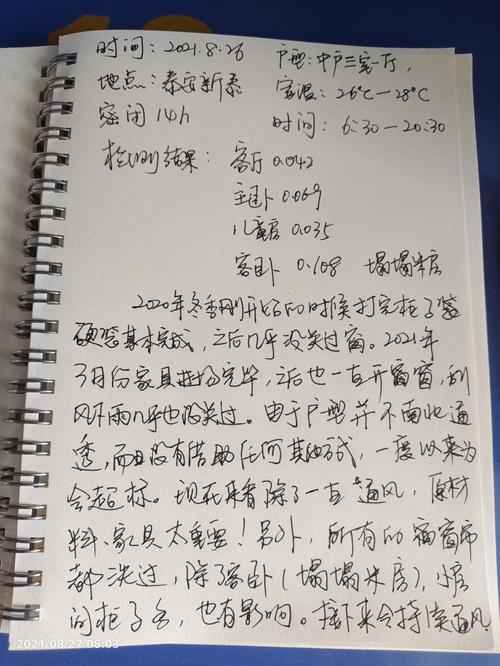 时间：2021.8.26 户型：中户三室一厅，
地点：泰安新泰 室温：26℃—28℃
密闭14h 时间：6:30—20:30
检测结果：客厅 0.042
主卧 0.069
儿童房 0.035
客卧 0.108 塌塌米房
2020年冬季刚开始的时候打完柜子等
硬装基本完成，之后几乎没关过窗。2021年
3月份家具进场完毕，之后也一直开窗，刮
风下雨几乎也没关过。由于户型并不南北通
透，而且没有借助任何其他方式，一度以为
会超标。现在来看除了一直通风，原材
料、家具太重要！另外，所有的窗帘
都洗过，除了客卧（塌塌米房），小房
间柜子多，也有影响。接下来会持续通风
2021/08/27 08:03